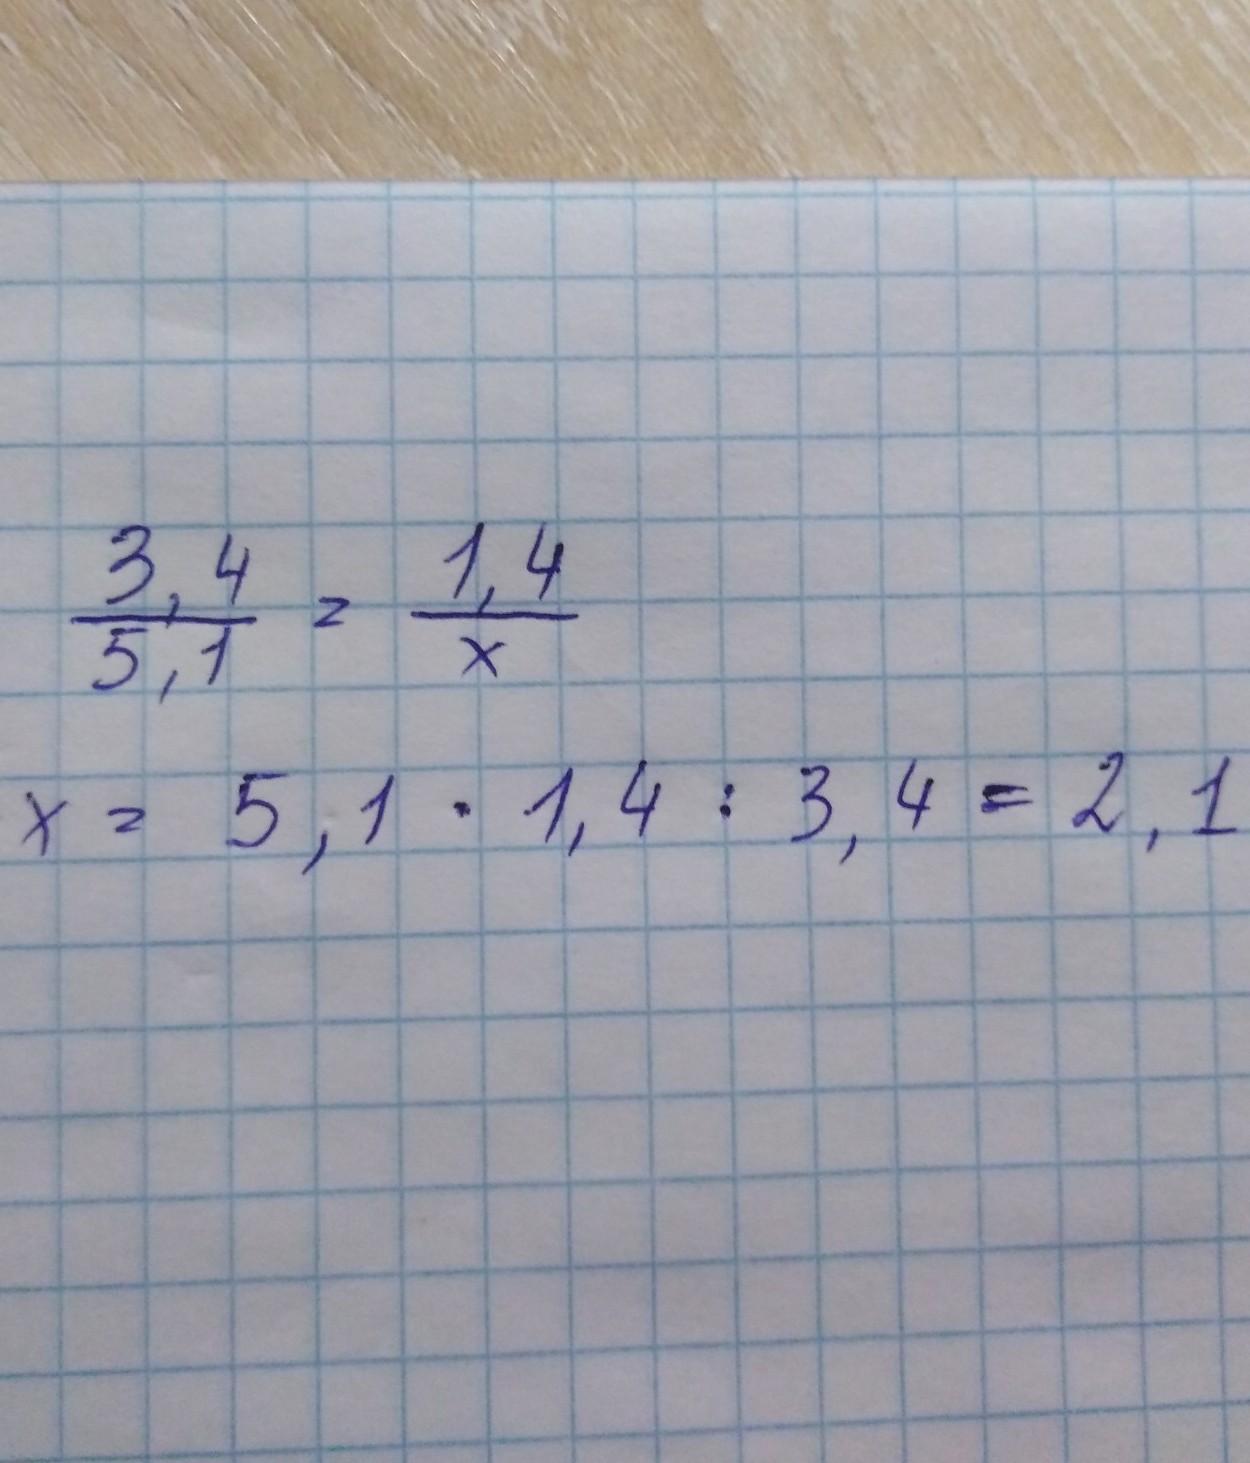 3,4/5,1 = 1,4/x
x = 5,1 · 1,4 : 3,4 = 2,1